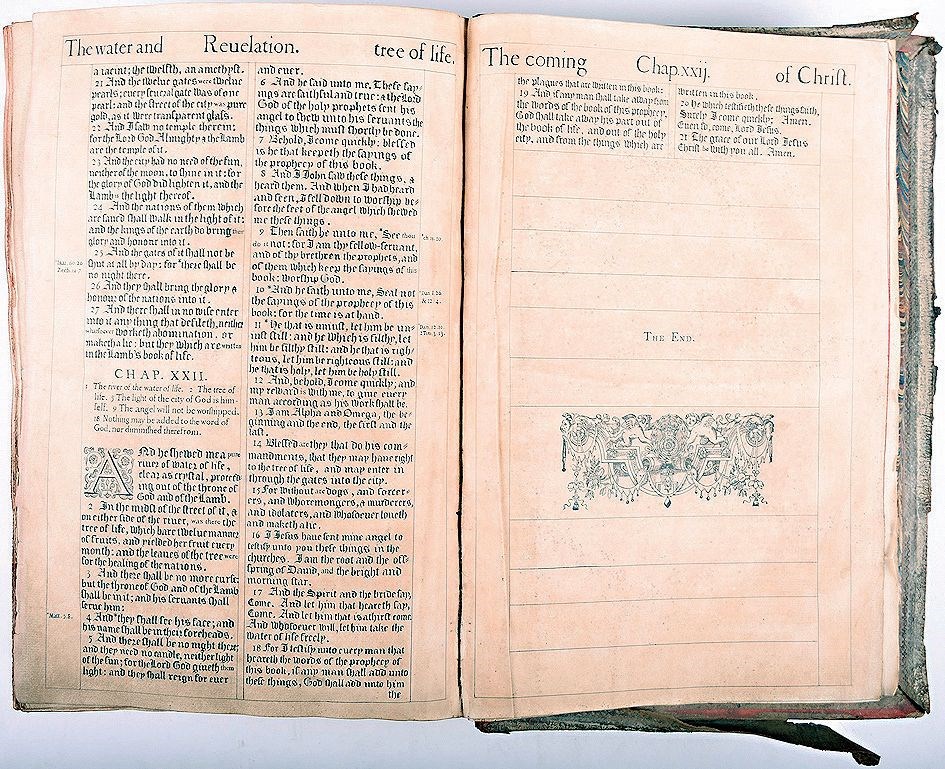 The water and Reuelation. tree of life.
a iacinct; the twelfth, an amethyst.
21 And the twelue gates were twelue
pearls; euery seuerall gate was of one
pearl: and the street of the city was pure
gold, as it were transparent glass.
22 And I saw no temple therein:
for the Lord God Almighty & the Lamb
are the temple of it.
23 And the city had no need of the sun,
neither of the moon, to shine in it: for
the glory of God did lighten it, and the
Lamb is the light thereof.
24 And the nations of them which
are saued shall walk in the light of it:
and the kings of the earth do bring their
glory and honour into it.
25 And the gates of it shall not be
shut at all by day: for there shall be
no night there.
26 And they shall bring the glory &
honour of the nations into it.
27 And there shall in no wise enter
into it any thing that defileth, neither
whatsoeuer worketh abomination, or
maketh a lie: but they which are written
in the Lamb's book of life.
CHAP. XXII.
1 The riuer of the water of life. 2 The tree of
life. 5 The light of the city of God is him-
self. 9 The angel will not be worshipped.
18 Nothing may be added to the word of
God, nor diminished therefrom.
And he shewed me a pure
riuer of water of life,
clear as crystal, proceed-
ing out of the throne of
God and of the Lamb.
2 In the midst of the street of it, &
on either side of the riuer, was there the
tree of life, which bare twelue manner
of fruits, and yielded her fruit euery
month: and the leaues of the tree were
for the healing of the nations.
3 And there shall be no more curse:
but the throne of God and of the Lamb
shall be in it; and his seruants shall
serue him:
4 And they shall see his face; and
his name shall be in their foreheads.
5 And there shall be no night there;
and they need no candle, neither light
of the sun; for the Lord God giueth them
light: and they shall reign for euer
and euer.
6 And he said unto me, These say-
ings are faithful and true: & the Lord
God of the holy prophets sent his
angel to shew unto his seruants the
things which must shortly be done.
7 Behold, I come quickly: blessed
is he that keepeth the sayings of
the prophecy of this book.
8 And I John saw these things, &
heard them. And when I had heard
and seen, I fell down to worship be-
fore the feet of the angel which shewed
me these things.
9 Then saith he unto me, See thou
do it not: for I am thy fellow-seruant,
and of thy brethren the prophets, and
of them which keep the sayings of this
book: worship God.
10 And he saith unto me, Seal not
the sayings of the prophecy of this
book: for the time is at hand.
11 He that is uniust, let him be un-
iust still: and he which is filthy, let
him be filthy still: and he that is righ-
teous, let him be righteous still: and
he that is holy, let him be holy still.
12 And, behold, I come quickly; and
my reward is with me, to giue euery
man according as his work shall be.
13 I am Alpha and Omega, the be-
ginning and the end, the first and the
last.
14 Blessed are they that do his com-
mandments, that they may haue right
to the tree of life, and may enter in
through the gates into the city.
15 For without are dogs, and sorcer-
ers, and whoremongers, & murderers,
and idolaters, and whosoeuer loueth
and maketh a lie.
16 I Jesus haue sent mine angel to
testify unto you these things in the
churches. I am the root and the off-
spring of Dauid, and the bright and
morning star.
17 And the Spirit and the bride say,
Come. And let him that heareth say,
Come. And let him that is athirst come.
And whosoeuer will, let him take the
water of life freely.
18 For I testify unto euery man that
heareth the words of the prophecy of
this book, if any man shall add unto
these things, God shall add unto him
the
The coming Chap.xxij. of Christ.
the plagues that are written in this book:
19 And if any man shall take away from
the words of the book of this prophecy,
God shall take away his part out of
the book of life, and out of the holy
city, and from the things which are
written in this book.
20 He which testifieth these things saith,
Surely I come quickly; Amen.
Euen so, come, Lord Jesus.
21 The grace of our Lord Jesus
Christ be with you all. Amen.
The End.